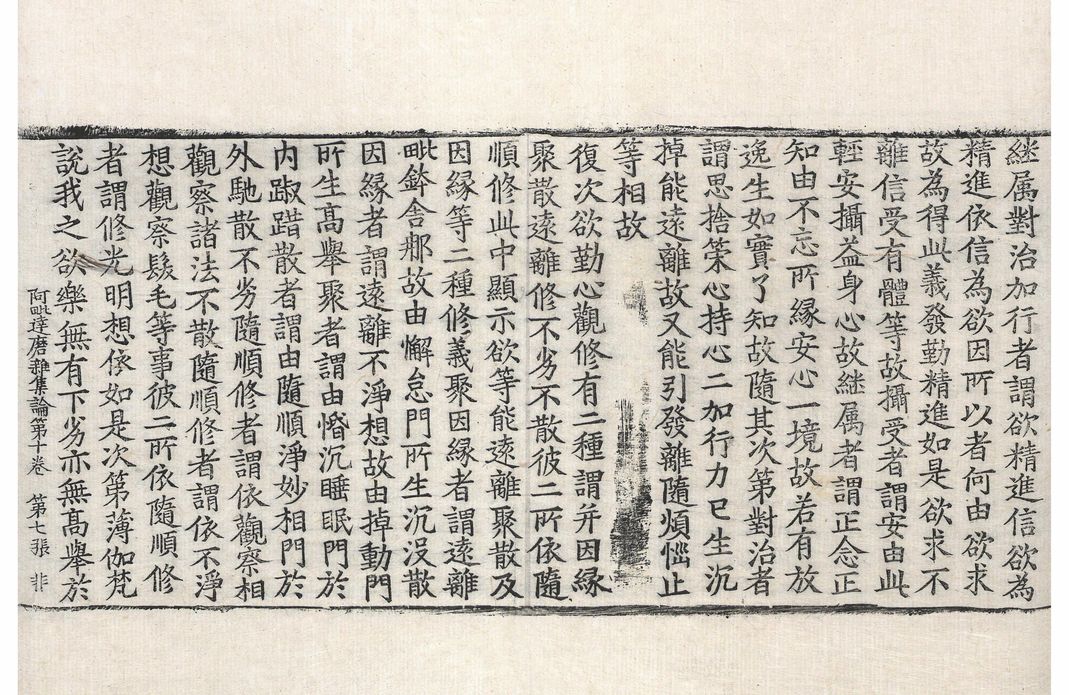 継属對治加行者謂欲精進信欲為
精進依信為欲因所以者何由欲求
故為得此義發勤精進如是欲求不
離信受有體等故攝受者謂安由此
輕安攝益身心故継属者謂正念正
知由不忘所縁安心一境故若有放
逸生如實了知故隨其次第對治者
謂思捨策心持心二加行力已生沉
掉能遠離故又能引發離隨煩惱止
等相故
復次欲勤心觀修有二種謂并因縁
聚散遠離修不劣不散彼二所依隨
順修此中顯示欲等能遠離聚散及
因縁等二種修義聚因縁者謂遠離
毗鉢舍那故由懈怠門所生沉没散
因縁者謂遠離不淨想故由掉動門
所生髙舉聚者謂由惛沉睡眠門於
内踧踖散者謂由隨順淨妙相門於
外馳散不劣隨順修者謂依觀察相
觀察諸法不散隨順修者謂依不淨
想觀察髮毛等事彼二所依隨順修
者謂修光明想依如是次第薄伽梵
說我之欲樂無有下劣亦無髙舉於
阿毗達磨雜集論第十卷 第七張 非